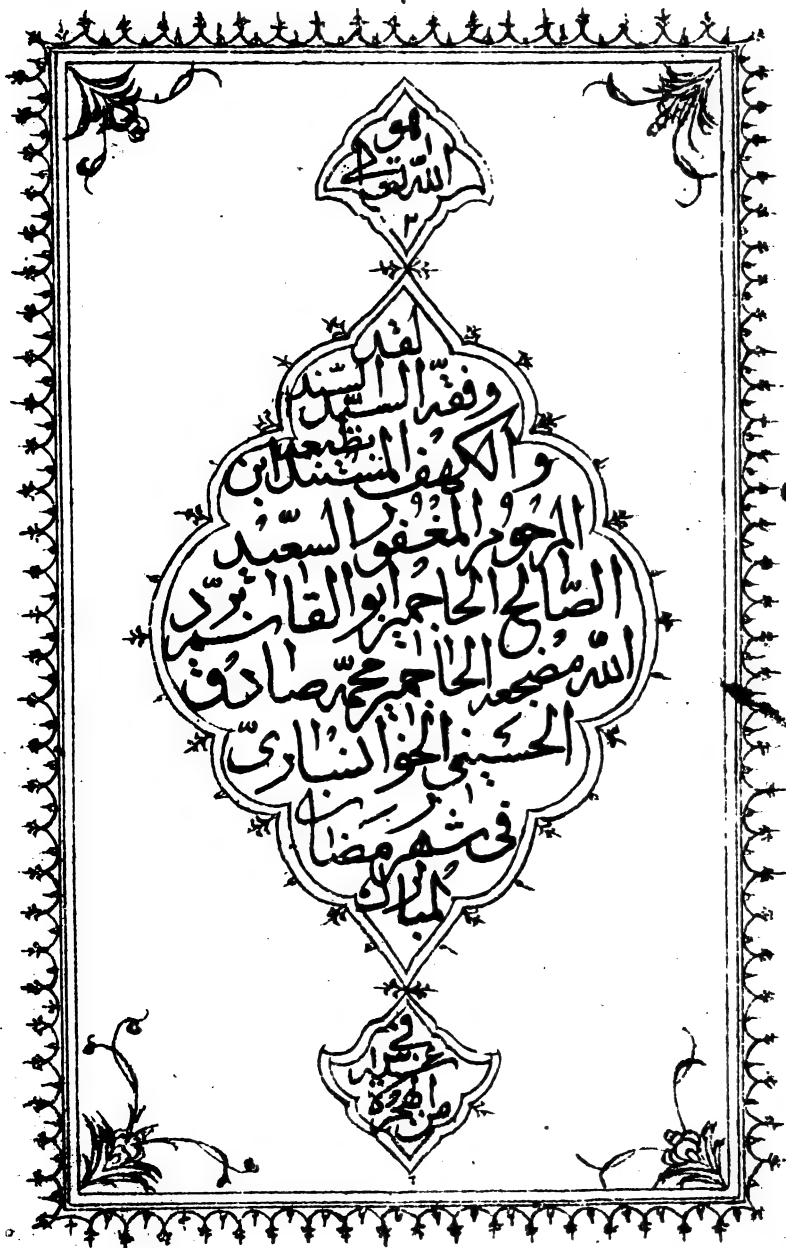 هو
الله تعالى
٢
لقد
وفقه السيد السند
والكهف المستند بطبعه ابن
المرحوم المغفور السعيد
الصالح الحاج مير ابو القاسم برّد
الله مضجعه الحاج مير محمّد صادق
الحسيني الخوانساريّ
في شهر رمضان
المبارك
من الهجرة